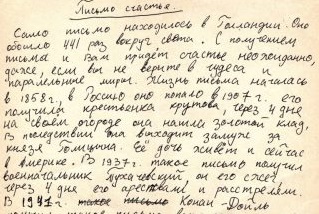 Письмо счастье.
Само письмо находилось в Голландии. Оно
обошло 441 раз вокруг света. С получением
письма и Вам придёт счастье неожиданно,
даже, если вы не верите в чудеса и
параллельные миры. Жизнь письма началась
в 1858 г. в Россию оно попало в 1907 г. его
получила крестьянка Крутова, через 4 дня
на своём огороде она нашла золотой клад.
В последствии она выходит замуж за
князя Голицина. Её дочь живёт и сейчас
в Америке. В 1937 г. такое письмо получил
военачальник Тухачевский он его сжёг
через 4 дня его арестовали и расстреляли.
В 1941 г. такое письмо Конан-Дойль